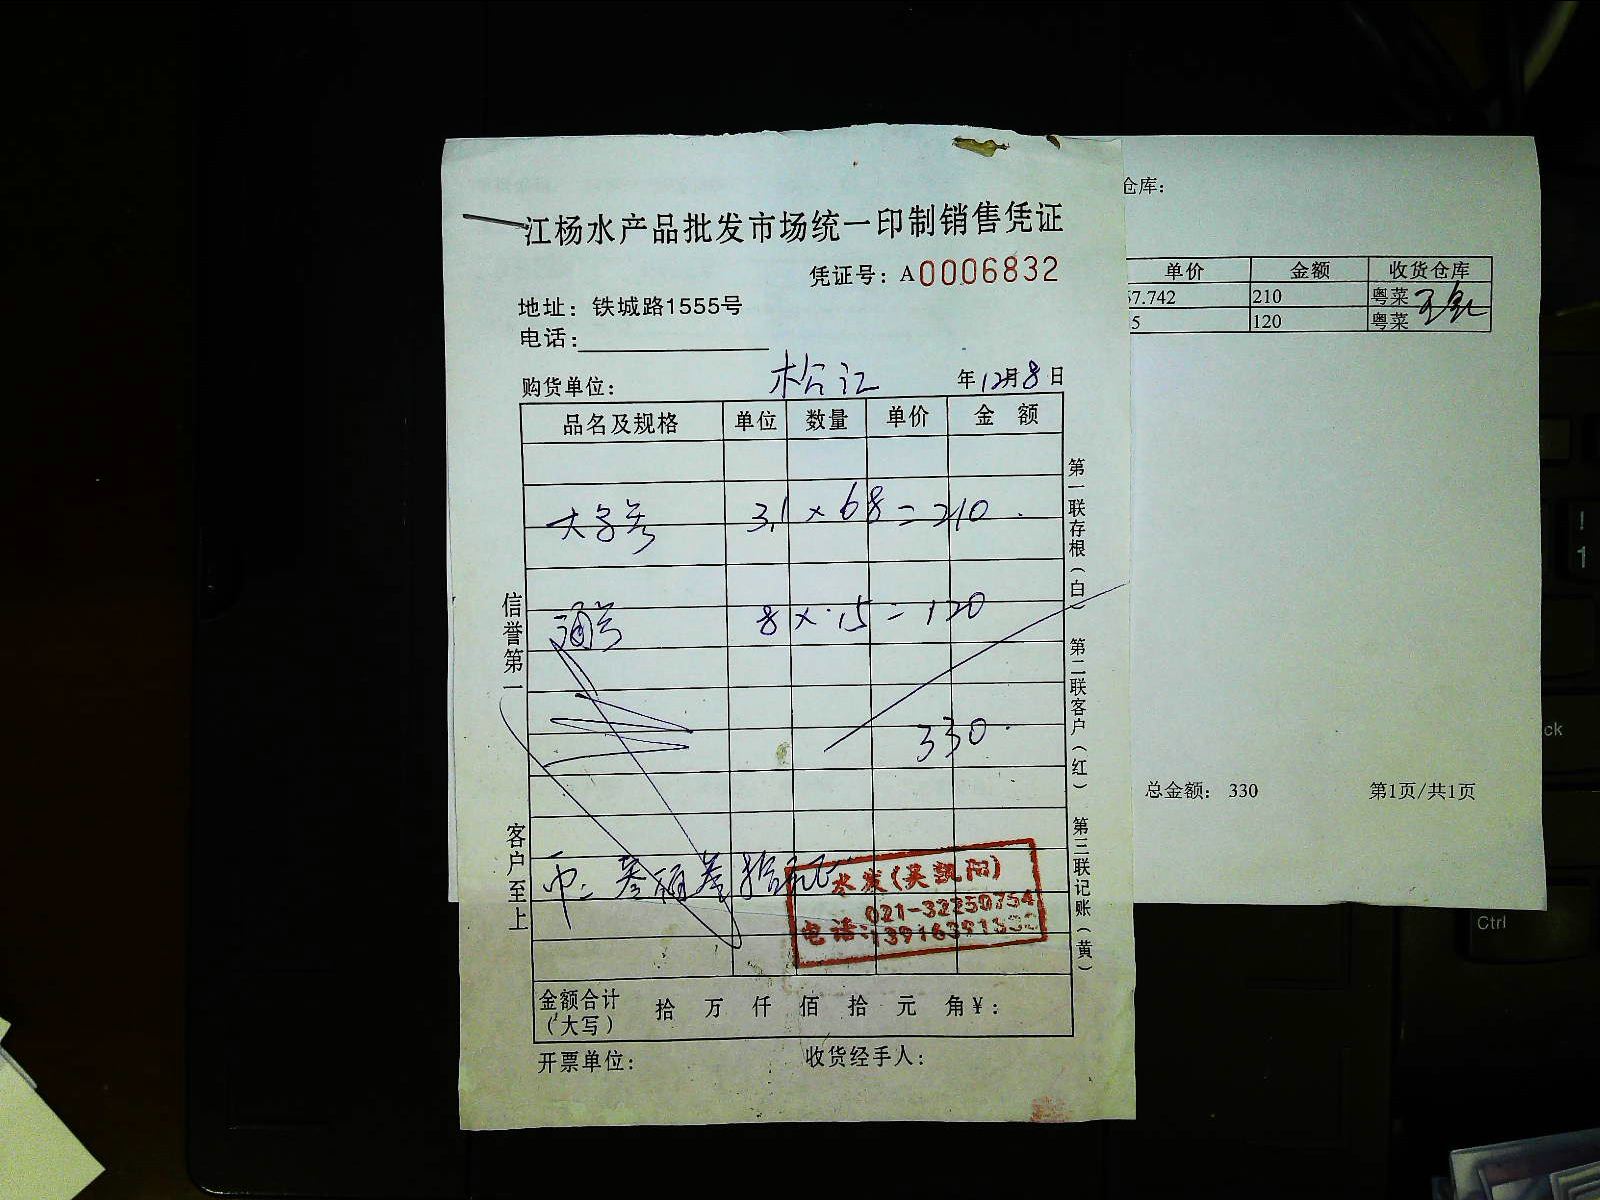 江杨水产品批发市场统一印制销售凭证
凭证号：A0006832
地址：铁城路1555号
电话：
购货单位： 松江 年12月8日
品名及规格 单位 数量 单价 金 额
3.1 × 68 = 210
8 × 15 = 120
330
币： 叁佰叁拾元
水发(吴凯阳)
021-32250754
电话:
金额合计 拾 万 仟 佰 拾 元 角¥：
（大写）
开票单位： 收货经手人：
信誉第一
客户至上
第一联存根（白） 第二联客户（红） 第三联记账（黄）
仓库：
单价 金额 收货仓库
7.742 210 粤菜
5 120 粤菜
总金额： 330 第1页/共1页
!
1
ck
Ctrl